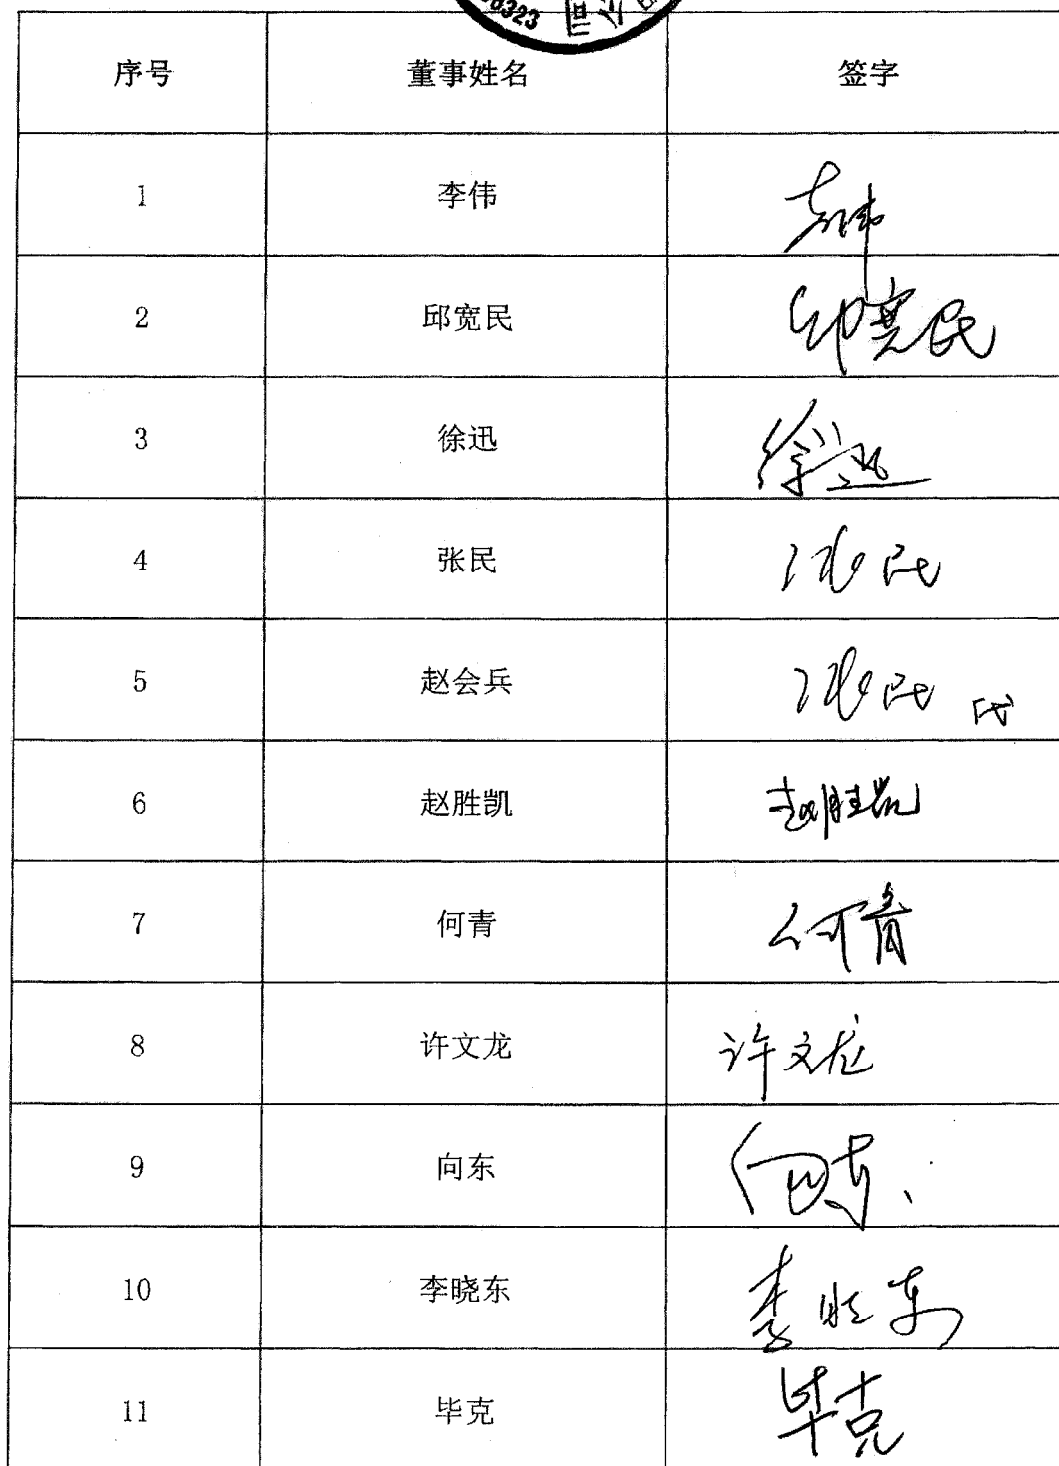 323
序号 董事姓名 签字
1 李伟 李伟
2 邱宽民 邱宽民
3 徐迅 徐迅
4 张民 张民
5 赵会兵 张民 代
6 赵胜凯 赵胜凯
7 何青 何青
8 许文龙 许文龙
9 向东 向东
10 李晓东 李晓东
11 毕克 毕克